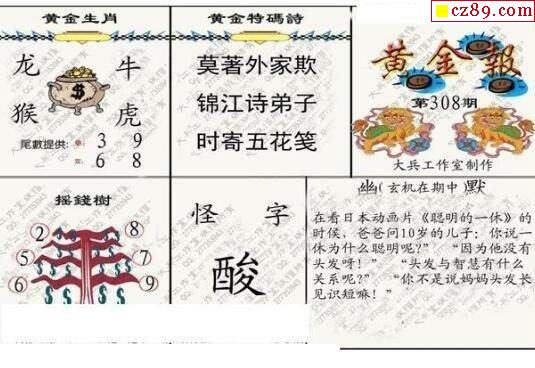 cz89.com
黄金生肖
龙 牛
猴 虎
$
尾數提供: 單: 3 9
双: 6 8
黄金特碼詩
莫著外家欺
锦江诗弟子
时寄五花笺
黄金報
第308期
大兵工作室制作
摇錢樹
2 7
5 8
6 9
怪字
酸
幽(玄机在期中 默
在看日本动画片《聪明的一休》的
时侯，爸爸问10岁的儿子；你说一
休为什么聪明呢?” “因为他没有
头发呀！” “头发与智慧有什么
关系呢?” “你不是说妈妈头发长
见识短嘛！”